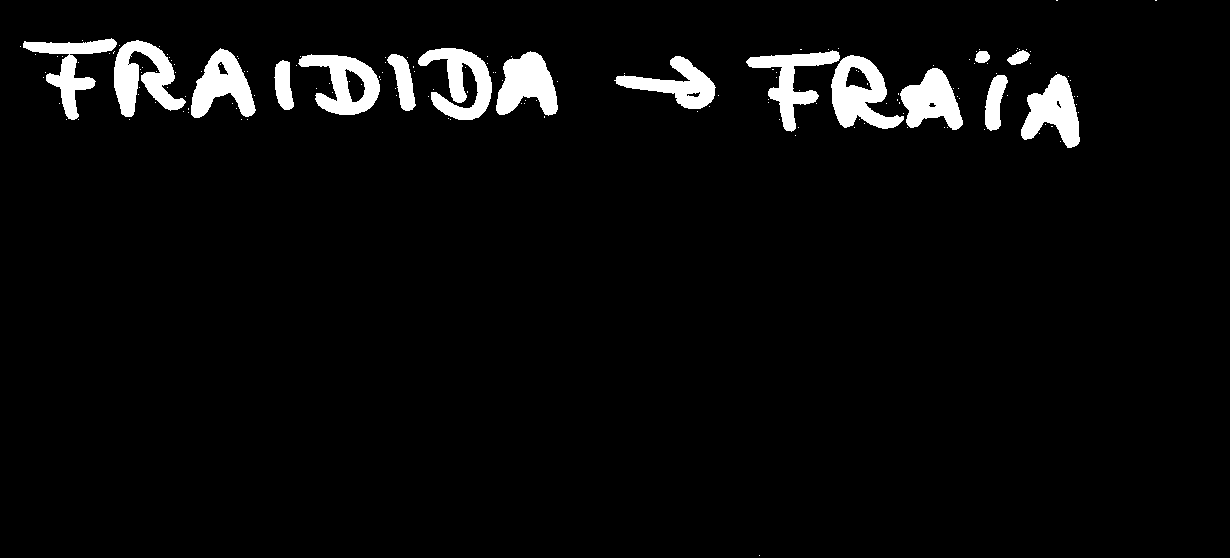 FRAIDIDA → FRAÏA